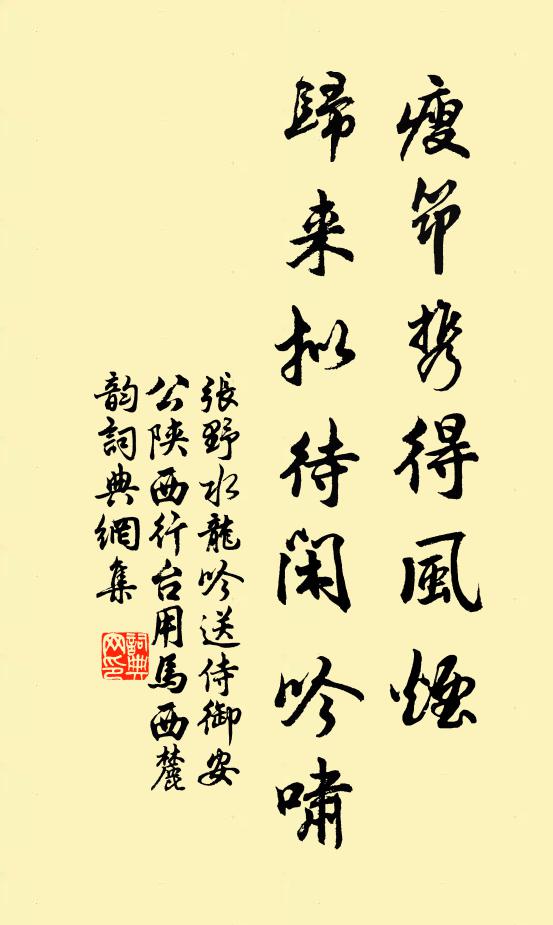 瘦笻携得風煙
歸来拟待闲吟嘯
張野水龍吟送侍御安
公陕西行台用馬西麓
韵詞典網集
詞典
网